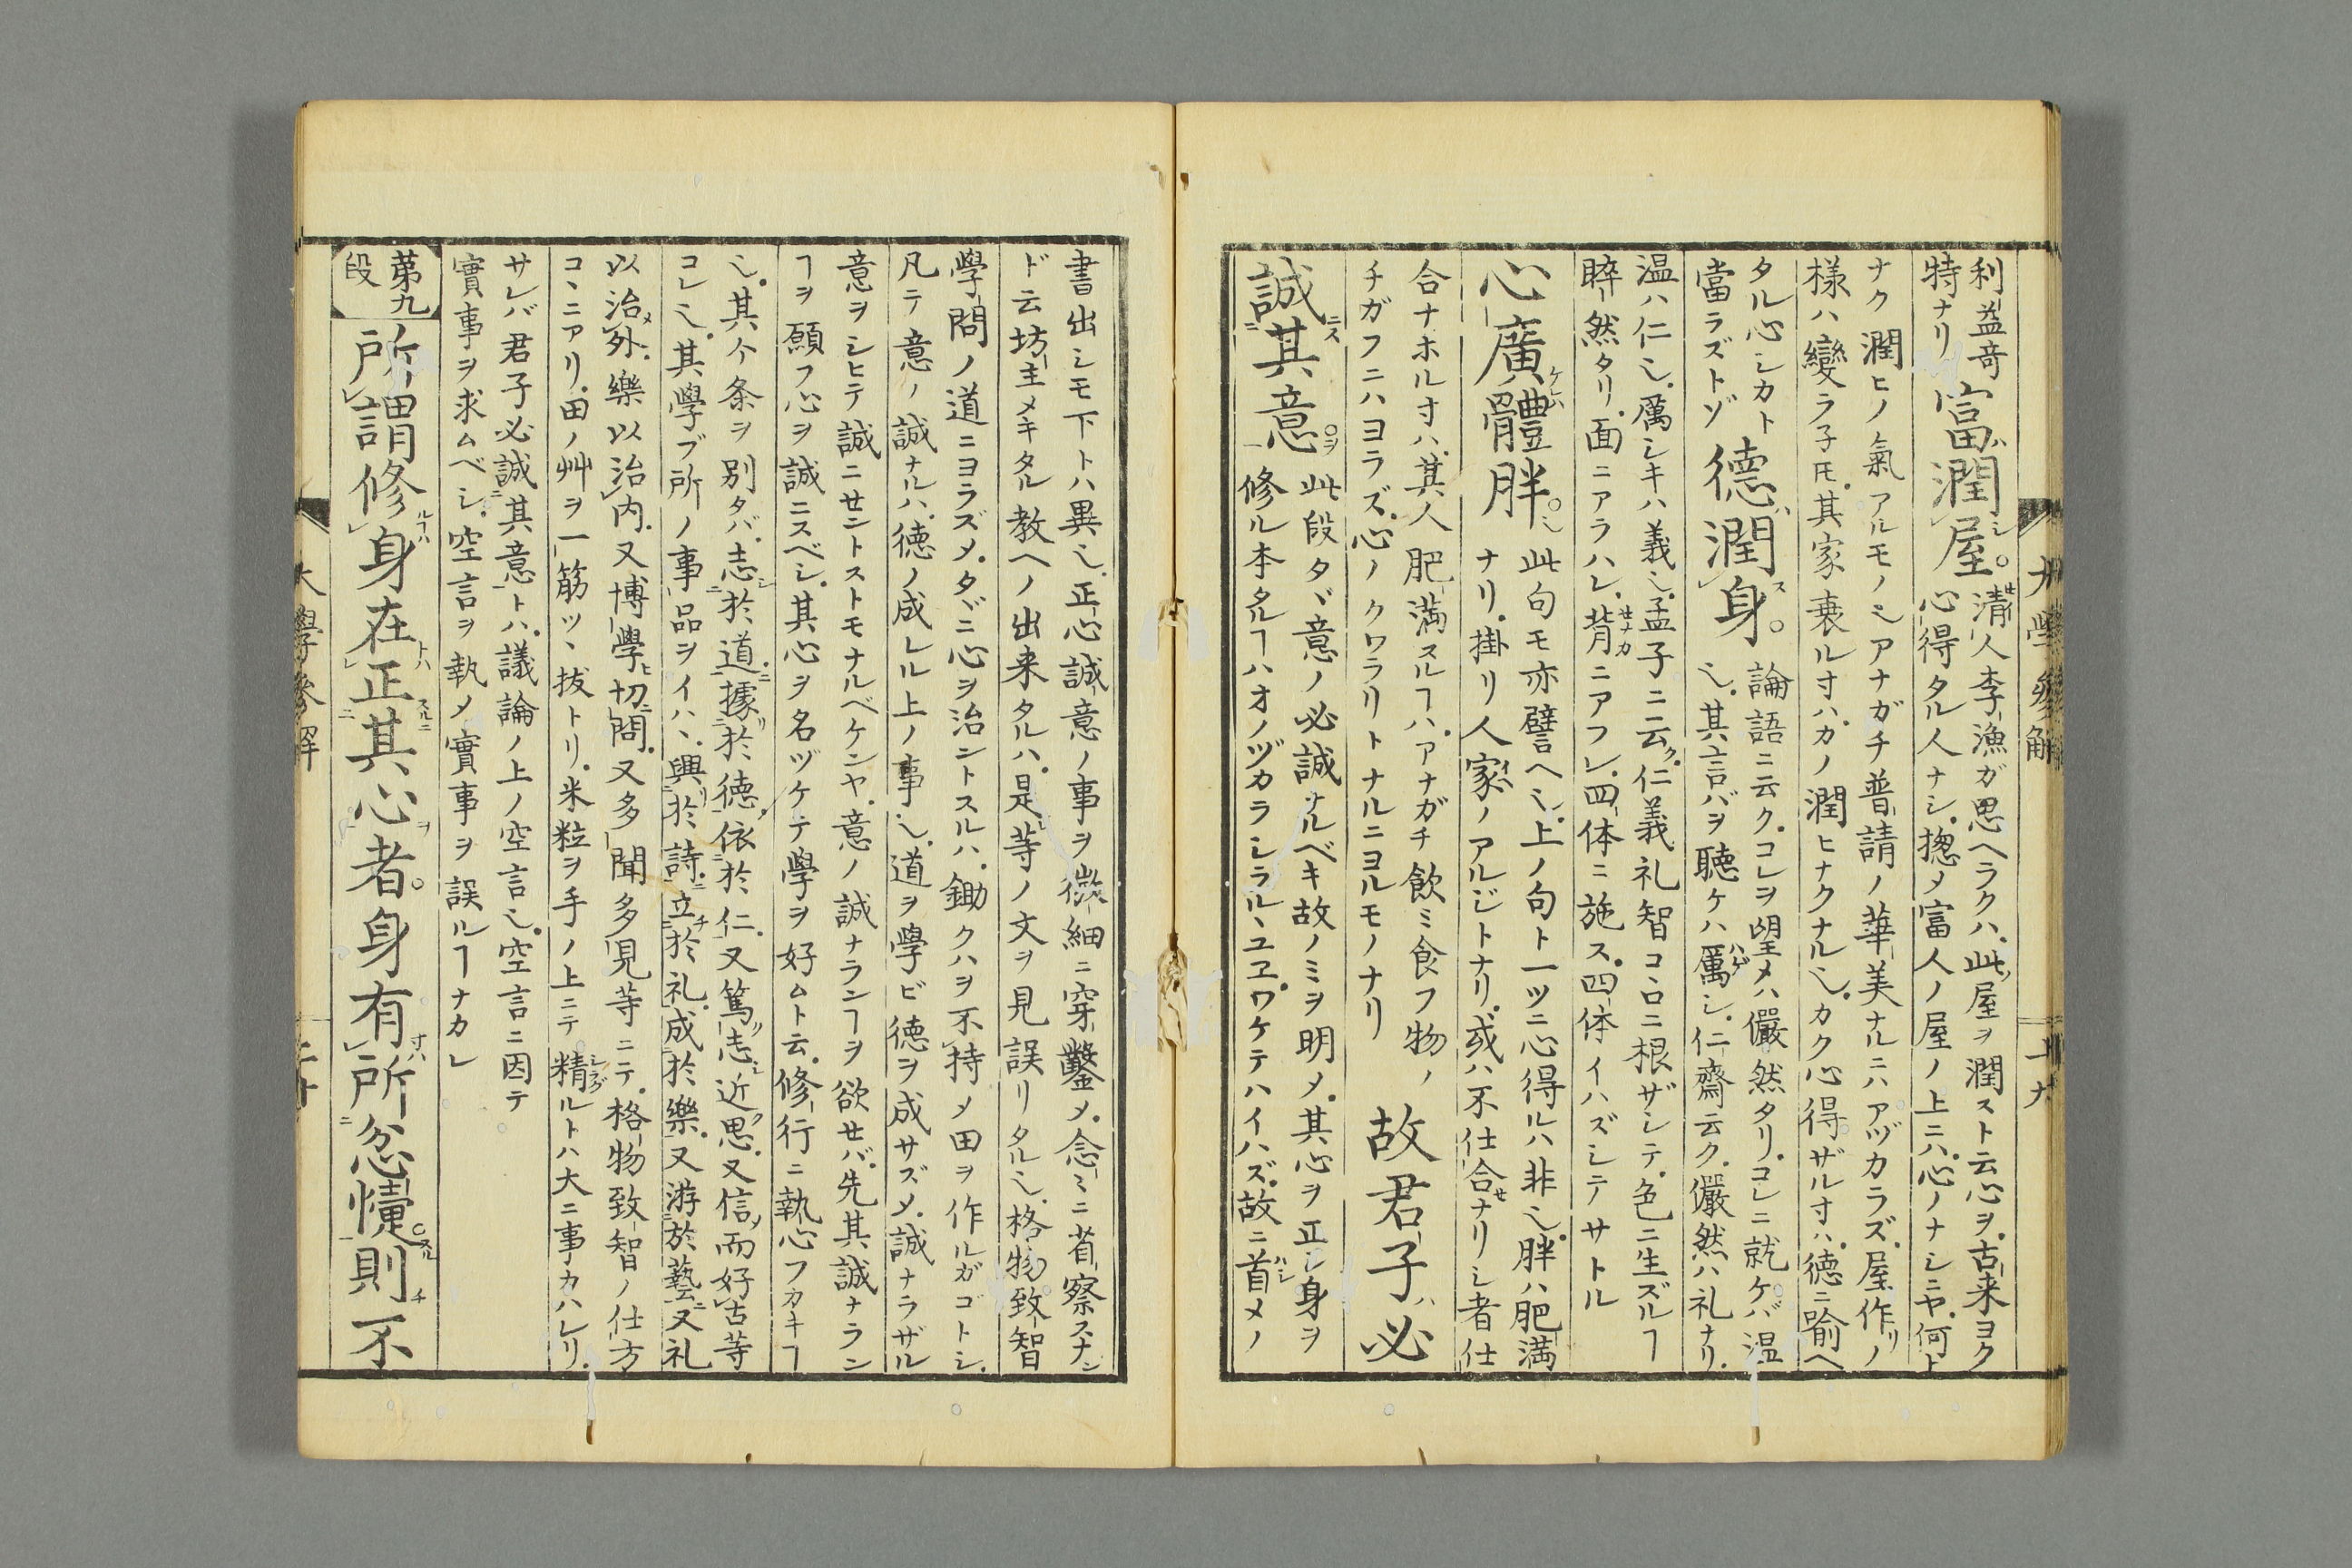 大學參解
利益奇
特ナリ
富潤屋。
清人李漁ガ思ヘラクハ此屋ヲ潤スト云心ヲ古来ヨク
心得タル人ナシ揔〆富人ノ屋ノ上ニハ心ノナシニヤ何ト
ナク潤ヒノ氣アルモノ也アナガチ普請ノ華美ナルニハアヅカラズ屋作リノ
様ハ變ラ子𪜈其家衰ル寸ハカノ潤ヒナクナル也カク心得ザル寸ハ德ニ喻ヘ
タル心シカト
當ラズトゾ
德潤身。
論語ニ云クコレヲ望メハ儼然タリコレニ就ケバ温
也其言バヲ聴ケハ厲シ仁齋云ク儼然ハ礼ナリ
温ハ仁也厲シキハ義也孟子ニ云ク仁義礼智コヽロニ根ザシテ色ニ生ズルヿ
睟然タリ面ニアラハレ背ニアフレ四体ニ施ス四体イハズシテサトル
心廣體胖。
此句モ亦譬ヘ也上ノ句ト一ツニ心得ルハ非也胖ハ肥満
ナリ掛リ人家ノアルジトナリ或ハ不仕合ナリシ者仕
合ナホル寸ハ其人肥満スルヿハアナガチ飲ミ食フ物ノ
チガフニハヨラズ心ノクワラリトナルニヨルモノナリ
故君子必
誠其意
此段タヾ意ノ必誠ナルベキ故ノミヲ明メ其心ヲ正シ身ヲ
修ル本タルヿハオノヅカラシラルヽユヱワケテハイハズ故ニ首メノ
書出シモ下トハ異也正心誠意ノ事ヲ微細ニ穿鑿〆念ミニ省察スナン
ド云坊主メキタル教ヘノ出来タルハ是等ノ文ヲ見誤リタル也格物致智
學問ノ道ニヨラズ〆タヾニ心ヲ治ントスルハ鋤クハヲ不持〆田ヲ作ルガゴトシ
凡テ意ノ誠ナルハ徳ノ成レル上ノ事也道ヲ學ビ德ヲ成サズ〆誠ナラザル
意ヲシヒテ誠ニセントストモナルベケンヤ意ノ誠ナランヿヲ欲セバ先其誠ナラン
ヿヲ願フ心ヲ誠ニスベシ其心ヲ名ヅケテ學ヲ好ムト云修行ニ執心フカキヿ
也其ケ条ヲ別タバ志於道據於德依於仁又篤志近思又信而好古等
コレ也其學ブ所ノ事品ヲイハヽ興於詩立於礼成於樂又游於藝又礼
以治外樂以治内又博學切問又多聞多見等ニテ格物致智ノ仕方
コヽニアリ田ノ艸ヲ一筋ツヽ抜トリ米粒ヲ手ノ上ニテ精ルトハ大ニ事カハレリ
サレバ君子必誠其意トハ議論ノ上ノ空言也空言ニ因テ
實事ヲ求ムベシ空言ヲ執〆實事ヲ誤ルヿナカレ
第九
段
所謂修身在正其心者。身有所忿懥則不
大學參解